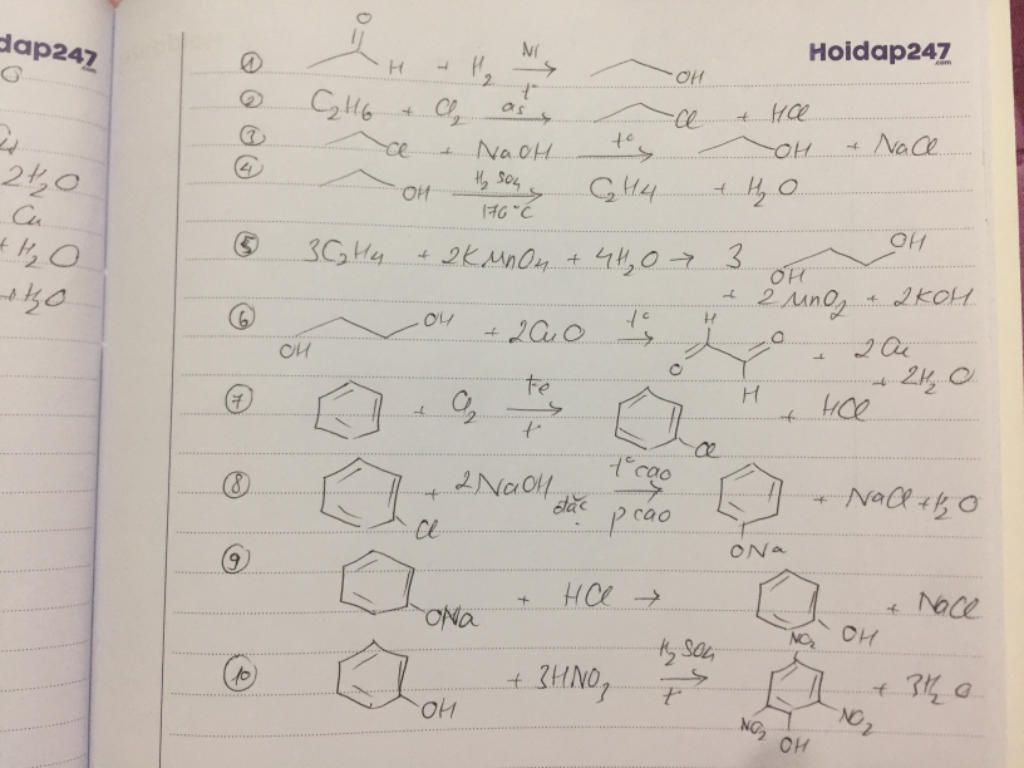 dap247
.com
2H2O
Cu
+ H2O
+ H2O
Hoidap247
.com
① O H + H2 Ni t° → OH
② C2H6 + Cl2 as → Cl + HCl
③ Cl + NaOH t° → OH + NaCl
④ OH H2SO4 170°C → C2H4 + H2O
⑤ 3C2H4 + 2KMnO4 + 4H2O → 3 OH OH
+ 2MnO2 + 2KOH
⑥ OH OH + 2CuO t° → H O O H + 2Cu
+ 2H2O
⑦ + Cl2 Fe t° → Cl + HCl
⑧ Cl + 2NaOH đặc t° cao p cao → ONa + NaCl + H2O
⑨ ONa + HCl → OH + NaCl
⑩ OH + 3HNO3 H2SO4 t° → NO2 NO2 NO2 OH + 3H2O